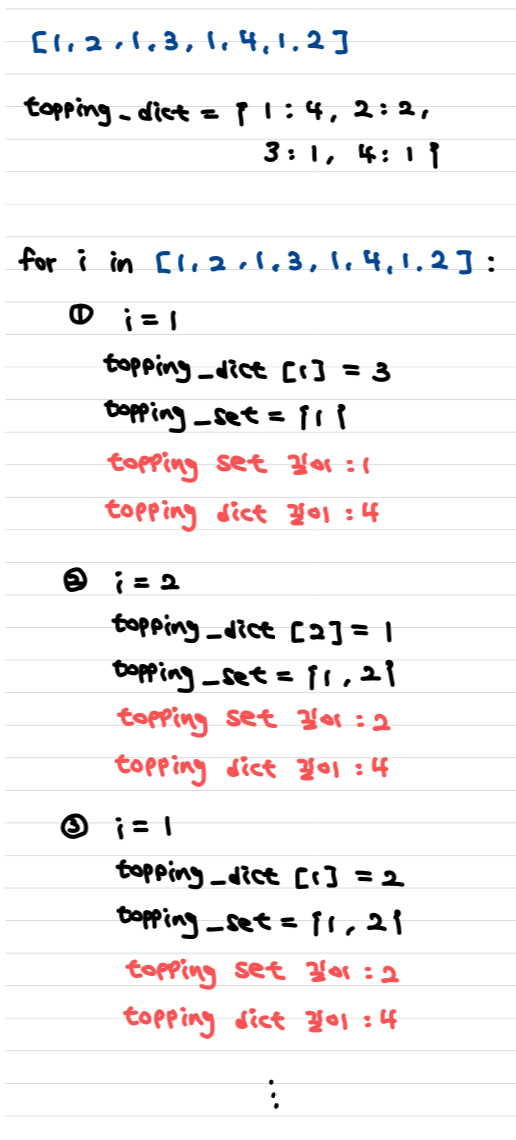 [1, 2, 1, 3, 1, 4, 1. 2]
topping_dict = { 1 : 4, 2 : 2,
3 : 1, 4 : 1 }
for i in [1, 2, 1, 3, 1, 4, 1. 2] :
① i = 1
topping_dict [1] = 3
topping_set = {1}
topping set 길이 : 1
topping dict 길이 : 4
② i = 2
topping_dict [2] = 1
topping_set = {1, 2}
topping set 길이 : 2
topping dict 길이 : 4
③ i = 1
topping_dict [1] = 2
topping_set = {1, 2}
topping set 길이 : 2
topping dict 길이 : 4
⋮